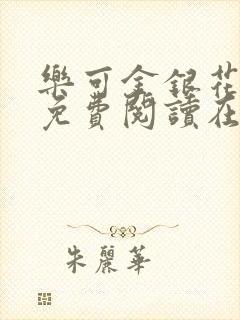 樂可金銀花
免費閱讀在
朱麗華